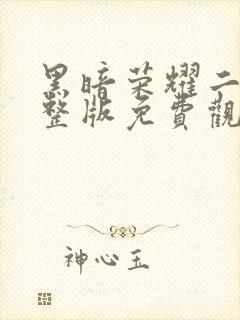 黑暗荣耀二
整版免費觀
神心玉